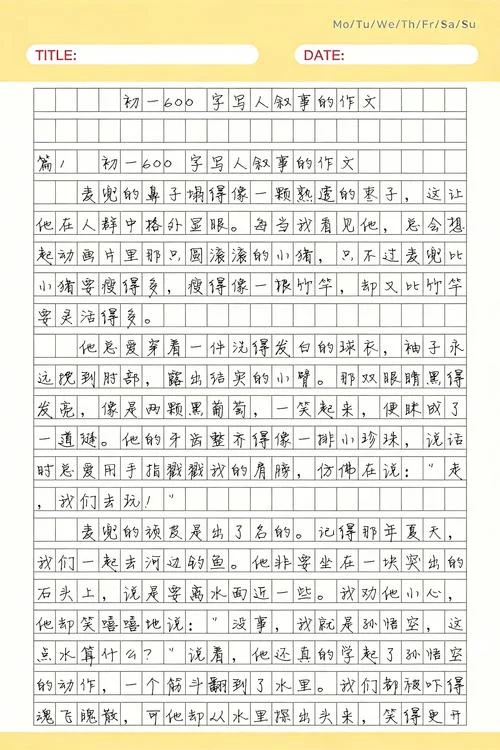 Mo/Tu/We/Th/Fr/Sa/Su
TITLE:
DATE:
初一600 字写人叙事的作文
篇1 初一600 字写人叙事的作文
麦兜的鼻子塌得像一颗熟透的枣子，这让
他在人群中格外显眼。每当我看见他，总会想
起动画片里那只圆滚滚的小猪，只不过麦兜比
小猪要瘦得多，瘦得像一根竹竿，却又比竹竿
要灵活得多。
他总爱穿着一件洗得发白的球衣，袖子永
远挽到肘部，露出结实的小臂。那双眼睛黑得
发亮，像是两颗黑葡萄，一笑起来，便眯成了
一道缝。他的牙齿整齐得像一排小珍珠，说话
时总爱用手指戳戳我的肩膀，仿佛在说："走
，我们去玩！"
麦兜的顽皮是出了名的。记得那年夏天，
我们一起去河边钓鱼。他非要坐在一块突出的
石头上，说是要离水面近一些。我劝他小心，
他却笑嘻嘻地说："没事，我就是孙悟空，这
点水算什么？"说着，他还真的学起了孙悟空
的动作，一个筋斗翻到了水里。我们都被吓得
魂飞魄散，可他却从水里探出头来，笑得更开